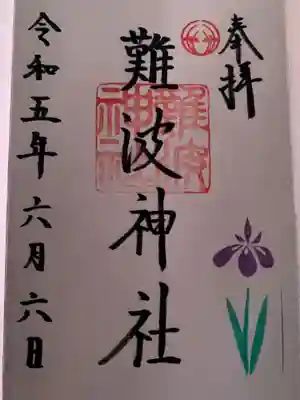 奉拝
難波神社
令和五年六月六日
難波神社